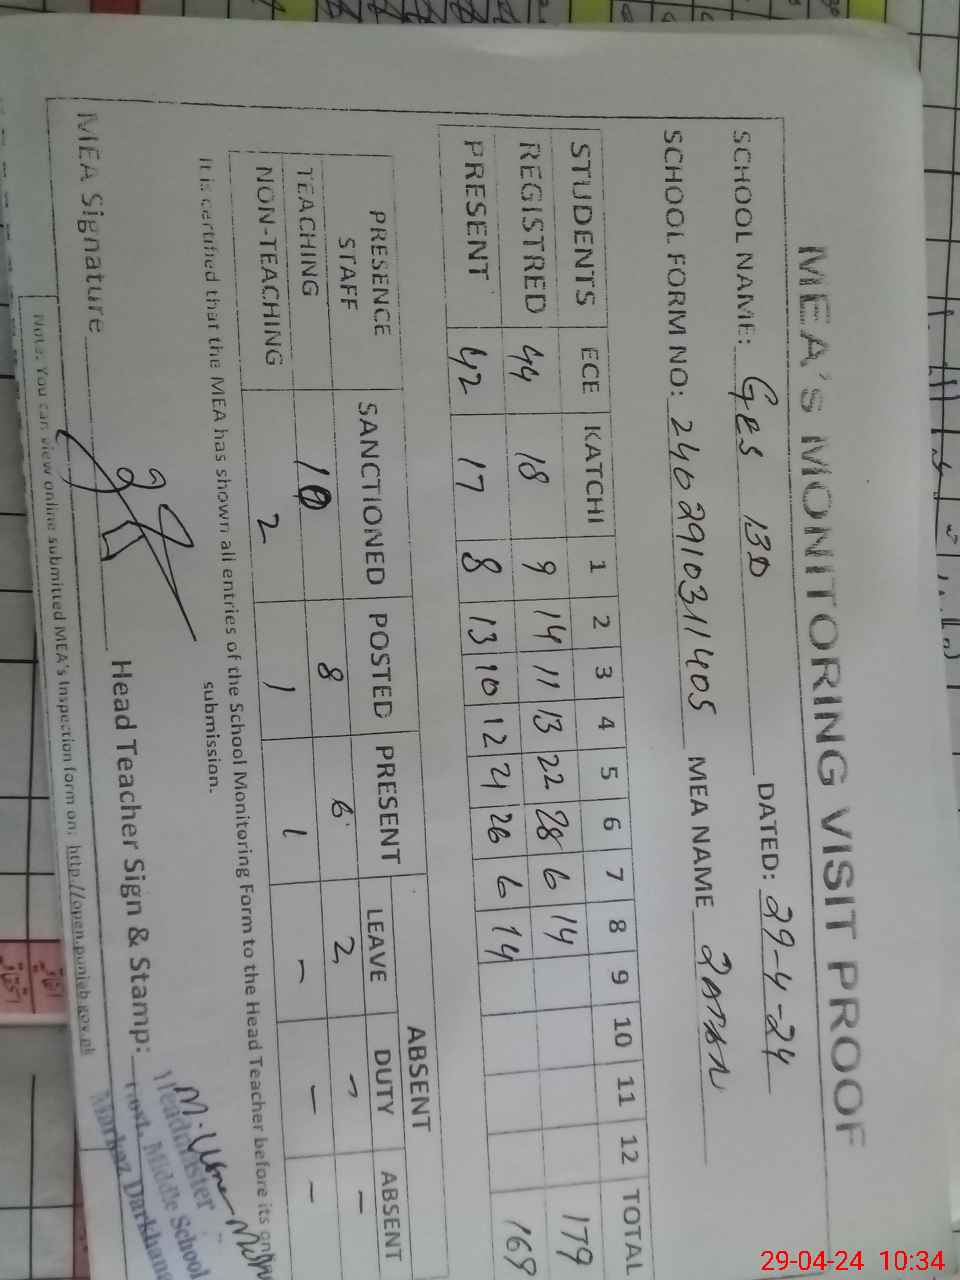 MEA'S MONITORING VISIT PROOF
SCHOOL NAME: GES 13D DATED: 29-4-24
SCHOOL FORM NO: 2402910311405 MEA NAME
STUDENTS ECE KATCHI 1 2 3 4 5 6 7 8 9 10 11 12 TOTAL
REGISTRED 44 18 9 14 11 13 22 28 6 14 179
PRESENT 42 17 8 13 10 12 21 26 6 14 169
PRESENCE STAFF SANCTIONED POSTED PRESENT ABSENT
LEAVE DUTY ABSENT
TEACHING 10 8 6 2 - -
NON-TEACHING 2 1 1 - - -
It is certified that the MEA has shown all entries of the School Monitoring Form to the Head Teacher before its online
submission.
MEA Signature Head Teacher Sign & Stamp:
Headmaster
Govt. Middle School
Markaz Darkhana
Note: You can view online submitted MEA's Inspection form on: http://open.punjab.gov.pk
29-04-24 10:34